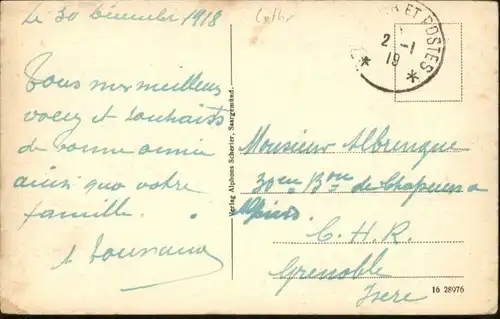 Le 30 Décembre 1918
Tous mes meilleurs
voeux et souhaits
de bonne année
ainsi que votre
famille.
Verlag Alphons Scherier, Saargemünd.
ET POSTES
2 -1
19
*
*
Monsieur Albrengue
30em Bon de Chasseurs a
Alpins
C. H. R.
Grenoble
Isere
16 28976